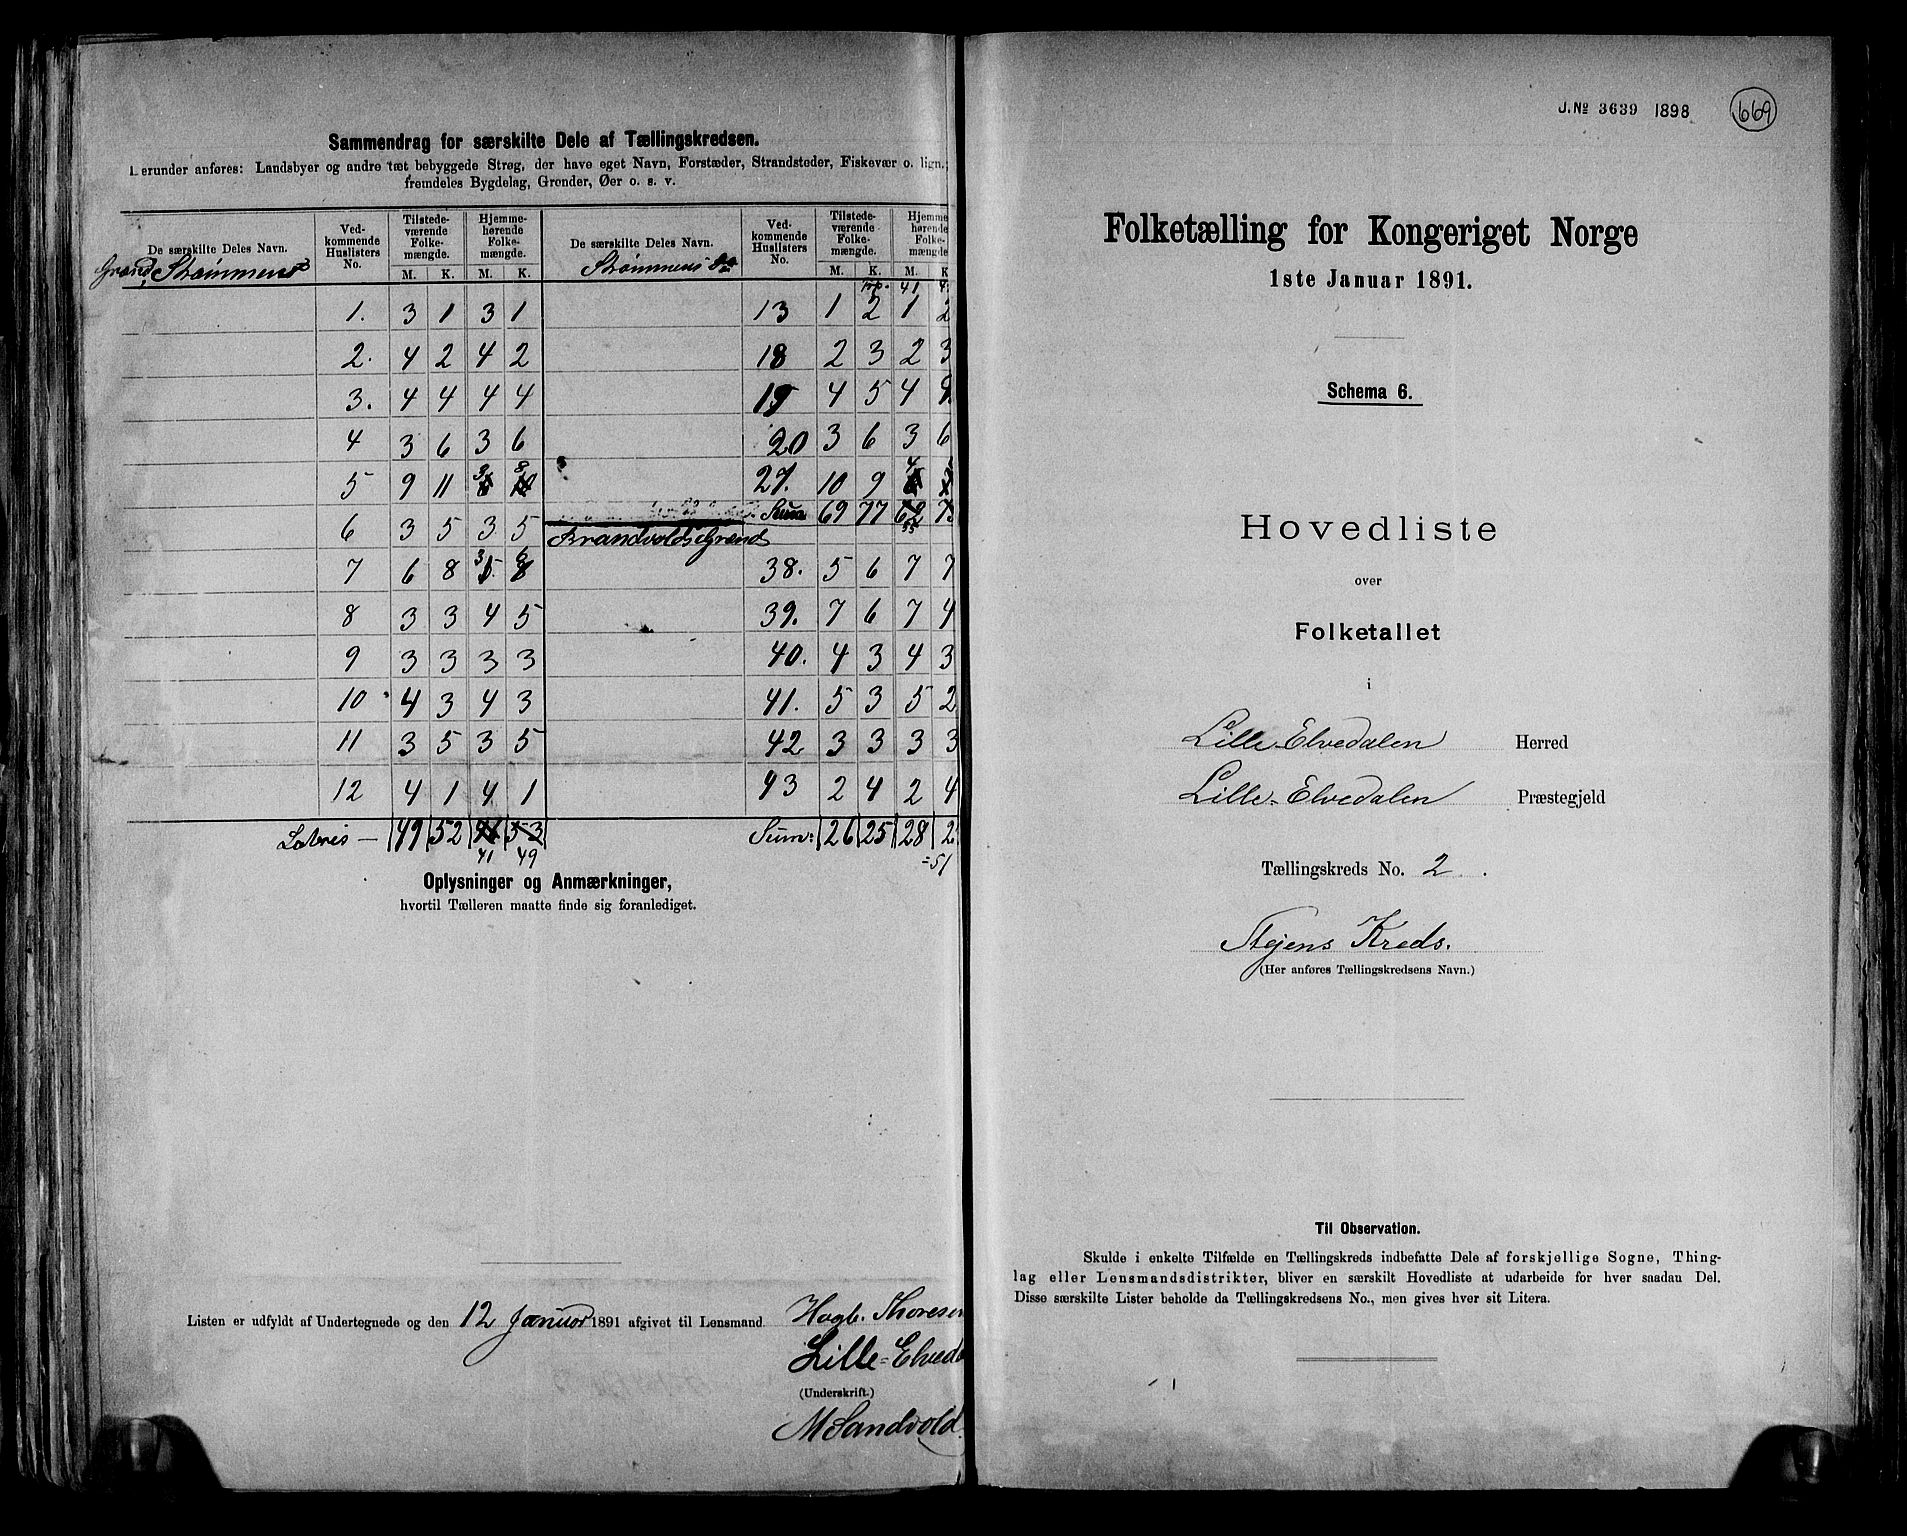 Sammendrag for særskilte Dele af Tællingskredsen.
Herunder anføres: Landsbyer og andre tæt bebyggede Strøg, der have eget Navn, Forstæder, Strandsteder, Fiskevær o. lign.;
fremdeles Bygdelag, Grender, Øer o. s. v.
De særskilte Deles Navn. Ved-kommende Huslisters No. Tilstede-værende Folke-mængde. Hjemme-hørende Folke-mængde. De særskilte Deles Navn. Ved-kommende Huslisters No. Tilstede-værende Folke-mængde. Hjemme-hørende Folke-mængde
M. K. M. K. M. K. M. K
Grend, Strømmens
Strømmens
41
1. 3 1 3 1 13 1 2 1 2
2. 4 2 4 2 18 2 3 2 3
3. 4 4 4 4 19 4 5 4
4 3 6 3 6 20 3 6 3 6
3 8 4
5 9 11 27. 10 9
Sum 69 77 62 7
55
6 3 5 3 5 Brandvolds Grend
3 6
7 6 8 5. 8 38. 5 6 7 7
8 3 3 4 5 39. 7 6 7 4
9 3 3 3 3 40. 4 3 4 3
10 4 3 4 3 41. 5 3 5 2
11 3 5 3 5 42 3 3 3 3
12 4 1 4 1 43 2 4 2 4
Lateris — 49 52 53 Sum: 26 25 28 2
41 49 =51
Oplysninger og Anmærkninger,
hvortil Tælleren maatte finde sig foranlediget.
Listen er udfyldt af Undertegnede og den 12 Januar 1891 afgivet til Lensmand Hagb. Thoresen
Lille-Elveda
(Underskrift.)
M Sandvold
J. No 3639 1898 669
Folketælling for Kongeriget Norge
1ste Januar 1891.
Schema 6.
Hovedliste
over
Folketallet
i
Lille-Elvedalen Herred
Lille-Elvedalen Præstegjeld
Tællingskreds No. 2.
Stejens Kreds.
(Her anføres Tællingskredsens Navn.)
Til Observation.
Skulde i enkelte Tilfælde en Tællingskreds indbefatte Dele af forskjellige Sogne, Thing-
lag eller Lensmandsdistrikter, bliver en særskilt Hovedliste at udarbeide for hver saadan Del.
Disse særskilte Lister beholde da Tællingskredsens No., men gives hver sit Litera.